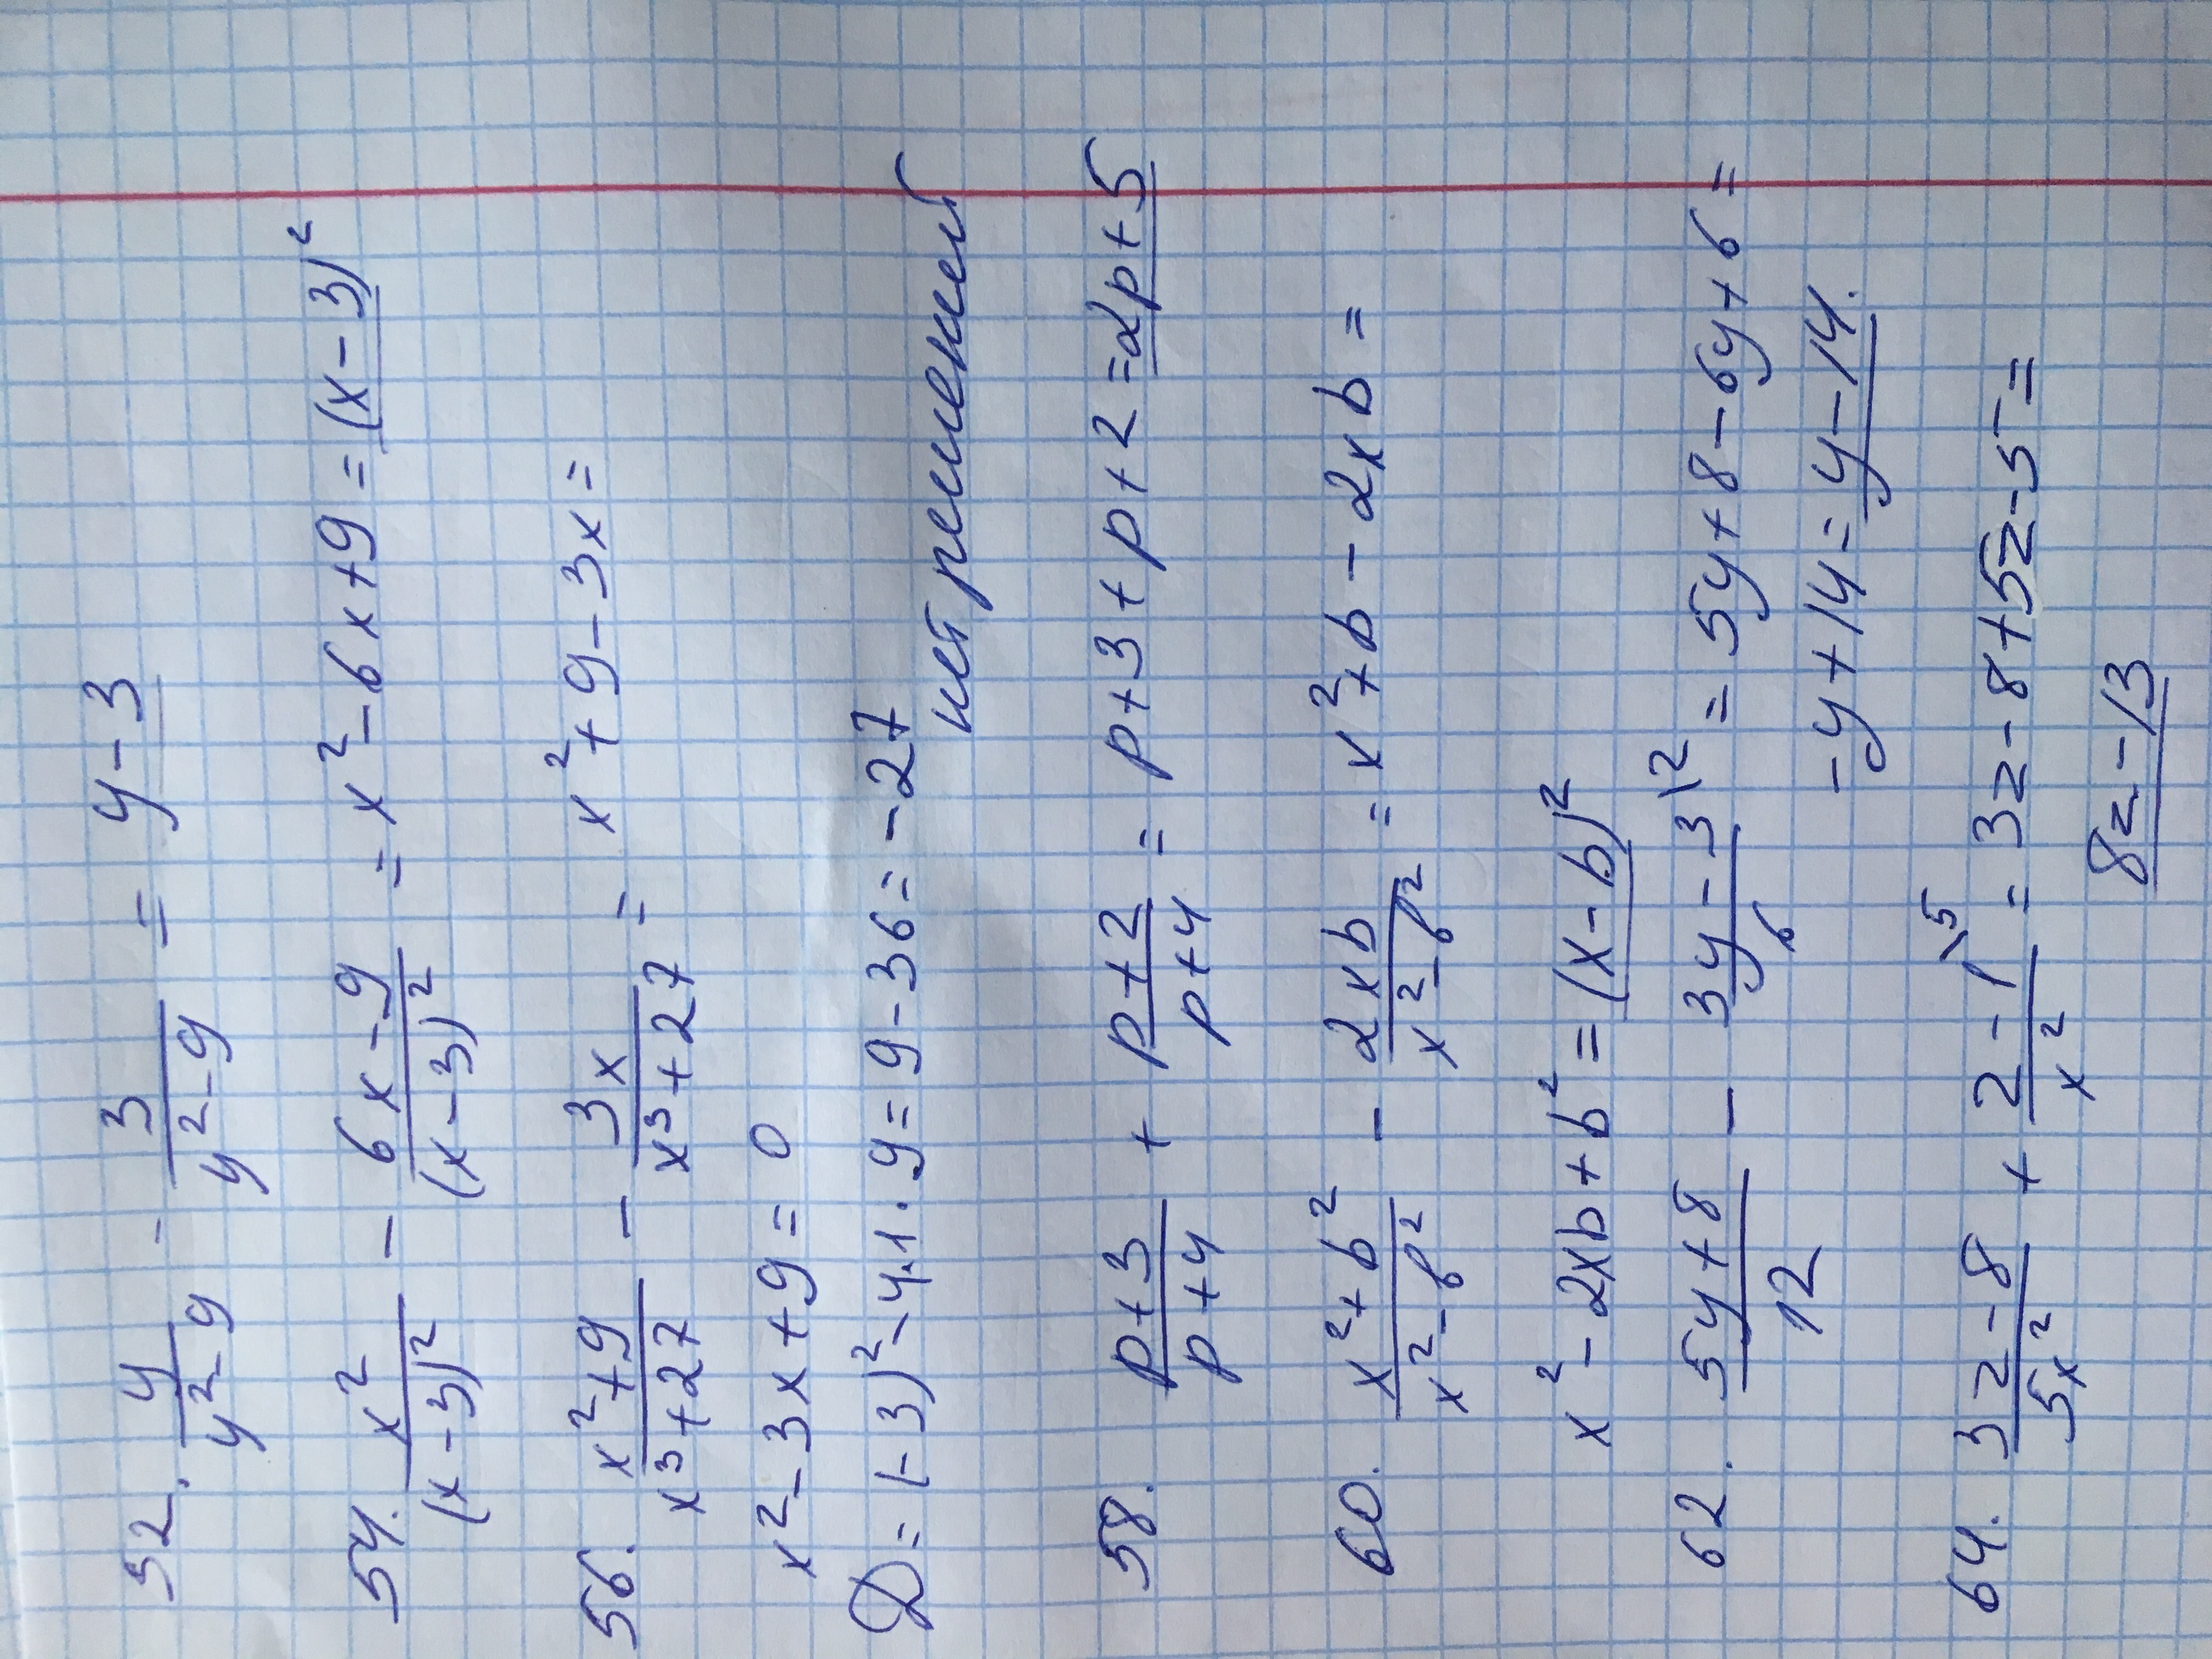 52. y/(y²-9) - 3/(y²-9) = y-3
54. x²/(x-3)² - (6x-9)/(x-3)² = x²-6x+9 = (x-3)²
56. (x²+9)/(x³+27) - 3x/(x³+27) = x²+9-3x =
x²-3x+9=0
D=(-3)²-4·1·9=9-36=-27
нет решений
58. (p+3)/(p+4) + (p+2)/(p+4) = p+3+p+2=2p+5
60. (x²+b²)/(x²-b²) - 2xb/(x²-b²) = x²+b-2xb=
x²-2xb+b²=(x-b)²
62. (5y+8)/12 - (3y-3)/6 \2 = 5y+8-6y+6=
-y+14=y-14.
64. (3z-8)/5x² + (2-1)/x² \5 = 3z-8+5z-5=
8z-13